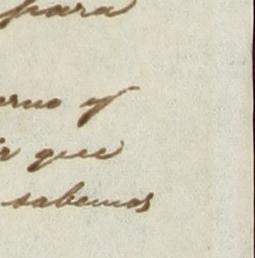 para
erno y
ir que
sabemos